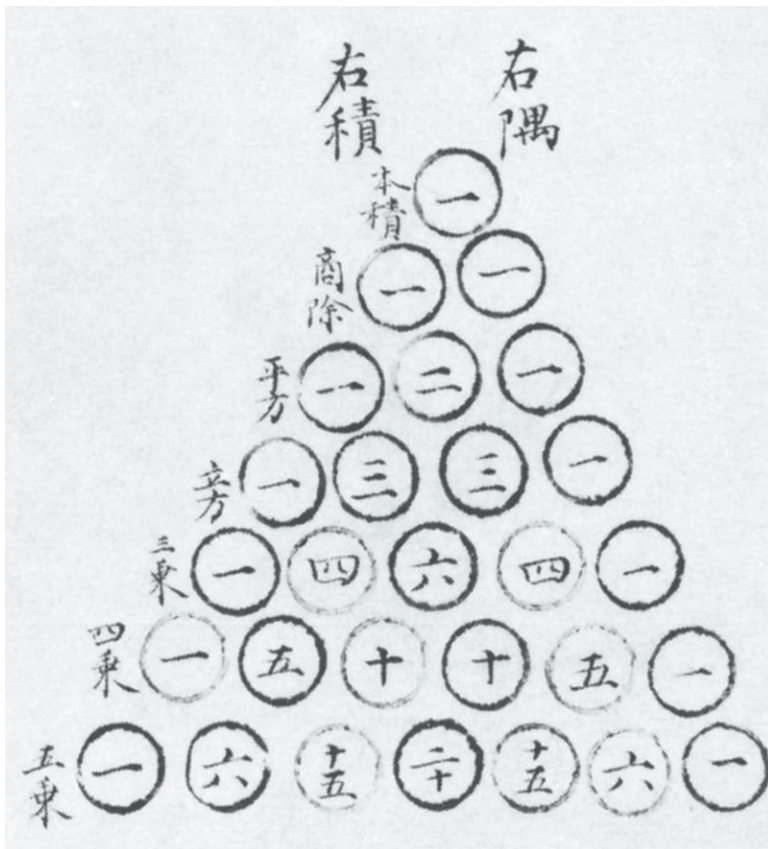 右積
右隅
本積 一
商除 一 一
平方 一 二 一
立方 一 三 三 一
三乘 一 四 六 四 一
四乘 一 五 十 十 五 一
五乘 一 六 十五 二十 十五 六 一